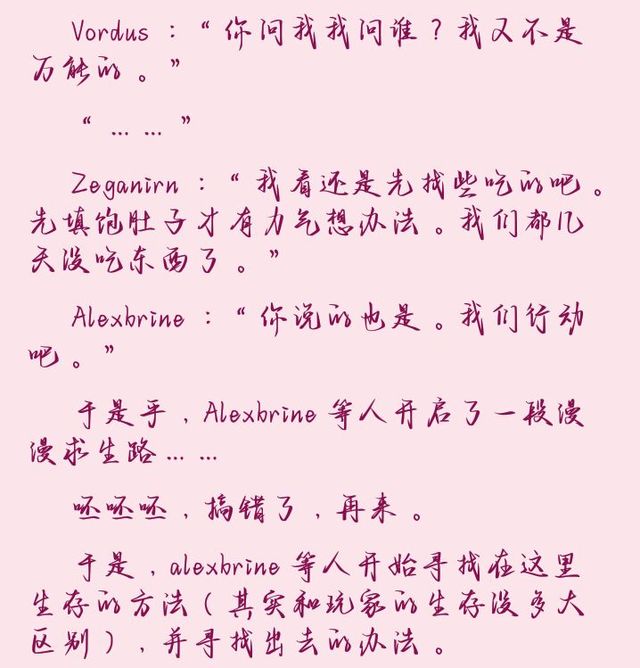 Vordus：“你问我我问谁？我又不是
万能的。”
“……”
Zeganirn：“我看还是先找些吃的吧。
先填饱肚子才有力气想办法。我们都几
天没吃东西了。”
Alexbrine：“你说的也是。我们行动
吧。”
于是乎，Alexbrine等人开启了一段漫
漫求生路……
呸呸呸，搞错了，再来。
于是，alexbrine等人开始寻找在这里
生存的方法（其实和玩家的生存没多大
区别），并寻找出去的办法。